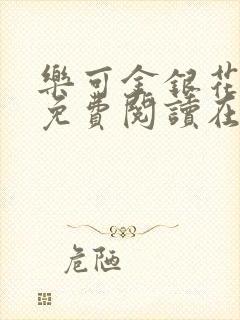 樂可金銀花
免費閱讀在
危陋